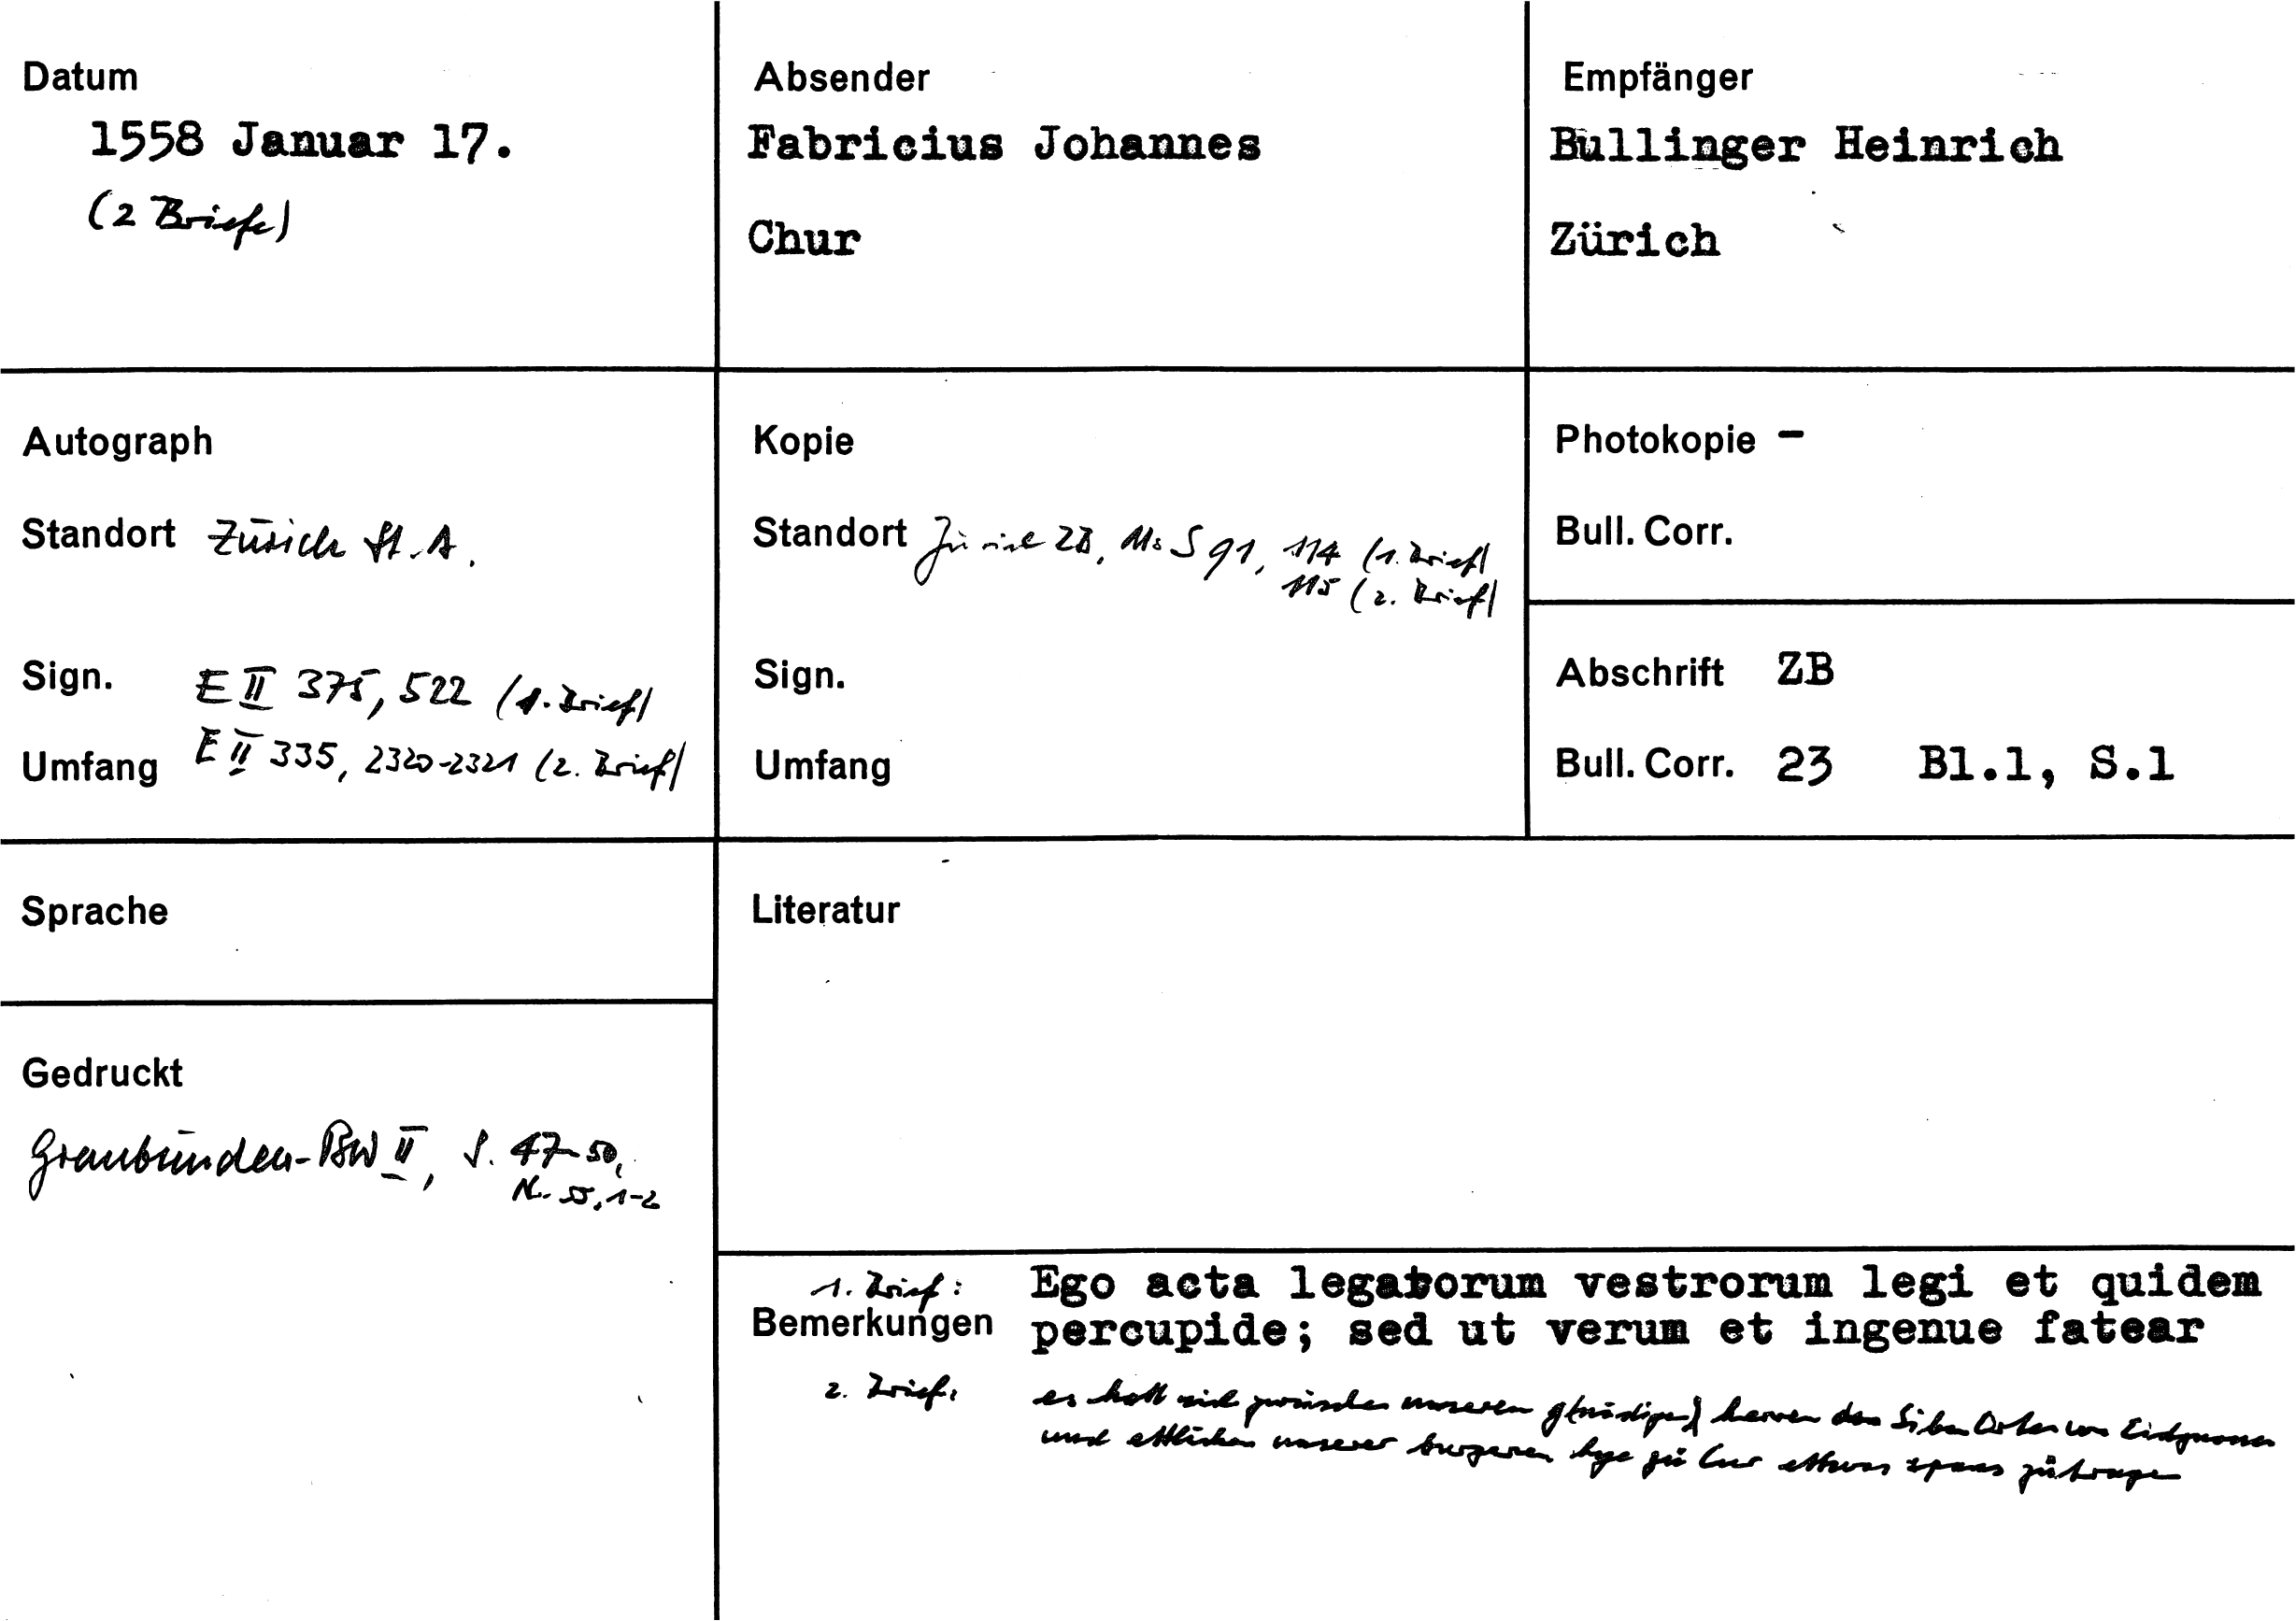 Datum
1558 Januar 17.
(2 Briefe)
Absender
Fabricius Johannes
Chur
Empfänger
Bullinger Heinrich
Zürich
Autograph
Standort Zürich St.A.
Sign. E II 375, 522 (1. Brief)
Umfang E II 335, 2320-2321 (2. Brief)
Kopie
Standort Zürich ZB, Ms S 91, 114 (1. Brief)
115 (2. Brief)
Sign.
Umfang
Photokopie -
Bull. Corr.
Abschrift ZB
Bull. Corr. 23 Bl.1, S.1
Sprache
Gedruckt
Graubünden-BW II, S. 47-50,
Nr. 55,1-2
Literatur
1. Brief:
Bemerkungen
Ego acta legatorum vestrorum legi et quidem
percupide; sed ut verum et ingenue fatear
2. Brief:
es hatt sich zwüschen unseren g(nädigen) herren den Siben Orten von Eidgnossen
und ettlichen unserer burgeren hye zü Cur ettwas spans zütragen